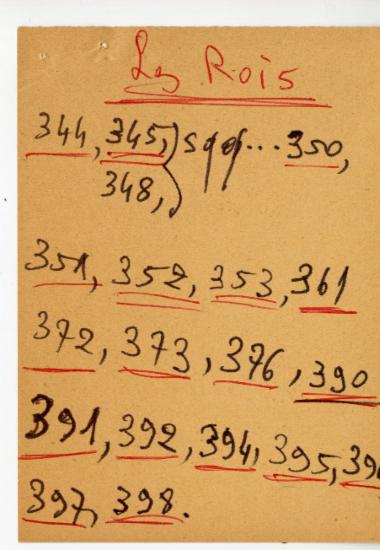 Les Rois
344, 345,) sqq... 350,
348,)
351, 352, 353, 361
372, 373, 376, 390
391, 392, 394, 395, 396
397, 398.